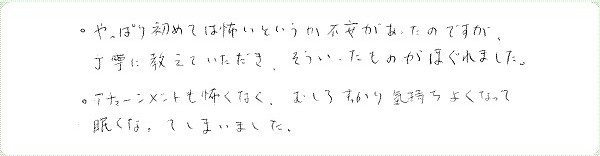 。やっぱり初めては怖いというか不安があったのですが、
丁寧に教えていただき、そういったものがほぐれました。
。アチューンメントも怖くなく、むしろすっかり気持ちよくなって
眠くなってしまいました。